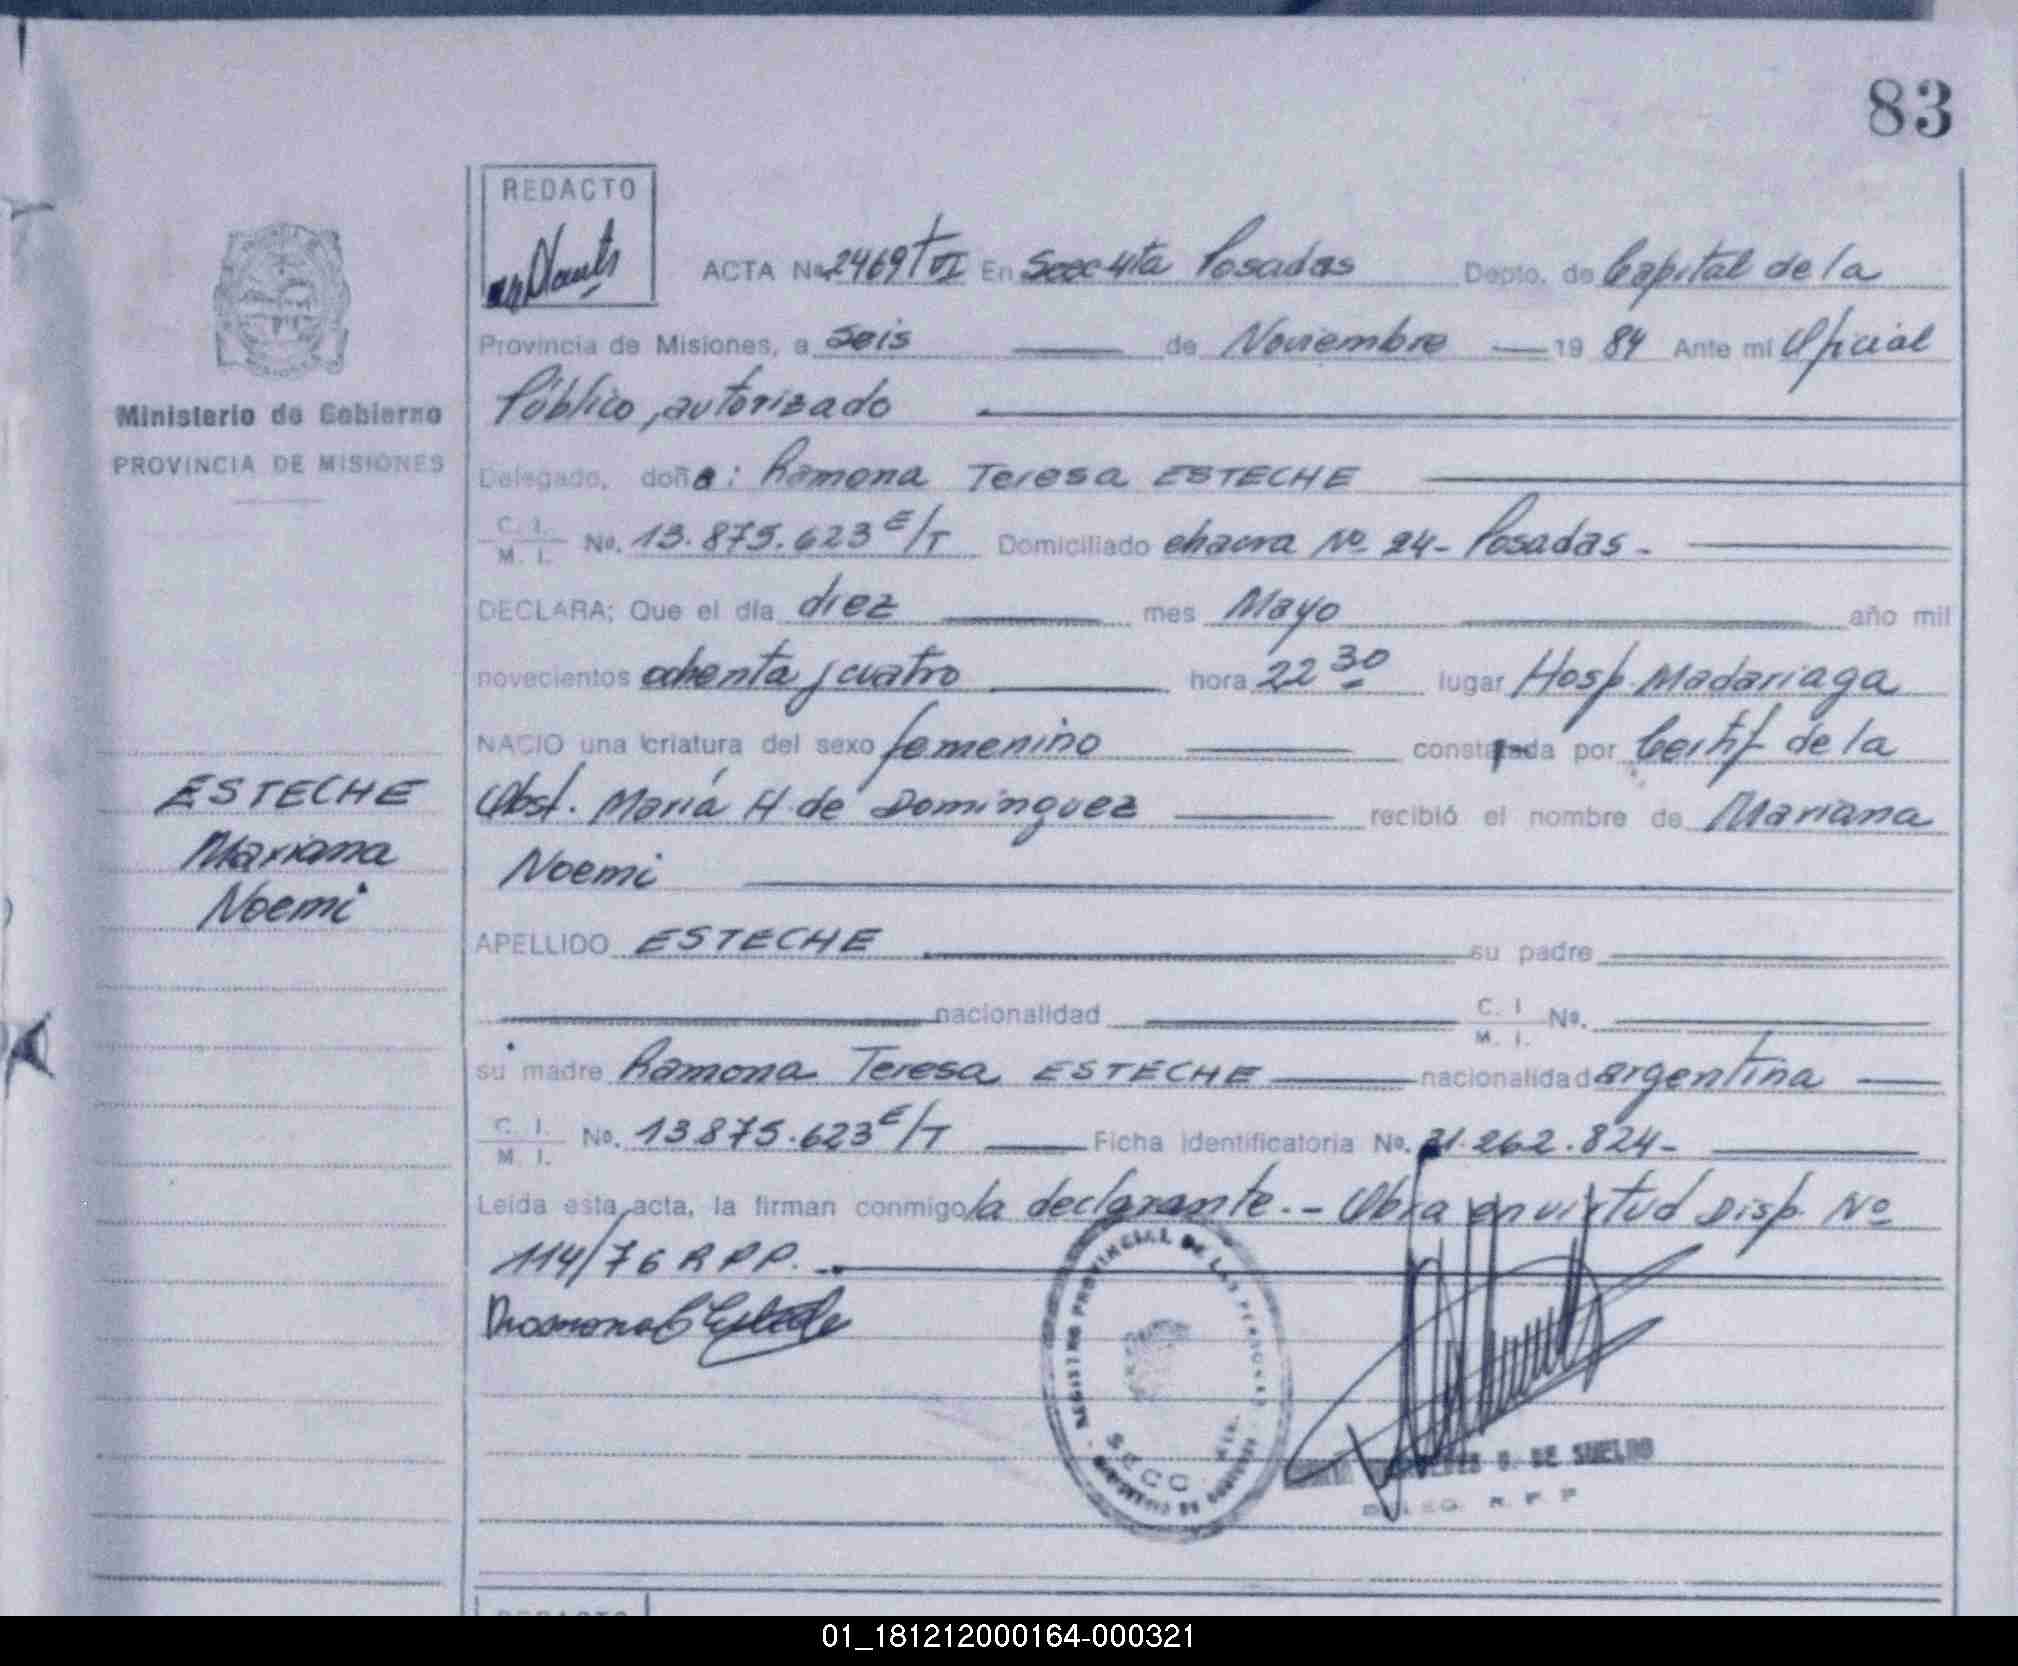 83
REDACTO
ACTA No. 2469 T VI En Secc 4ta Posadas Depto. de Capital de la
Provincia de Misiones, a seis de Noviembre 19 84 Ante mi Oficial
Público, autorizado
Ministerio de Gobierno
PROVINCIA DE MISIONES
Delegado, doña: Ramona Teresa ESTECHE
C. I. / M. I. No. 13.875.623 E/T Domiciliado chacra Nº 24- Posadas-
DECLARA; Que el día diez mes Mayo año mil
novecientos ochenta y cuatro hora 22 30 lugar Hosp. Madariaga
NACIO una criatura del sexo femenino constatada por Certif de la
Obst. María H. de Dominguez recibió el nombre de Mariana
Noemi
ESTECHE
Mariana
Noemi
APELLIDO ESTECHE su padre
nacionalidad C. I / M. I. No.
su madre Ramona Teresa ESTECHE nacionalidad argentina
C. I. / M. I. No. 13.875.623 E/T Ficha identificatoria No. 31.262.824-
Leída esta acta, la firman conmigo la declarante.- Obra en virtud Disp. Nº
114/76 R P P.
REGISTRO PROVINCIAL DE LAS PERSONAS
SECC
DE SUELDO
DELEG. R. P. P
REDACTO
01_181212000164-000321